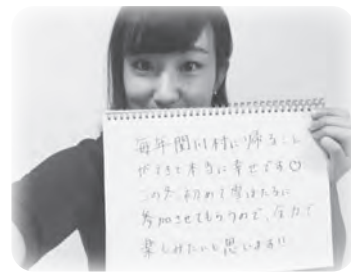 毎年関川村に帰ること
ができて本当に幸せです♡
この冬、初めて雪ほたるに
参加させてもらうので、全力で
楽しみたいと思います!!